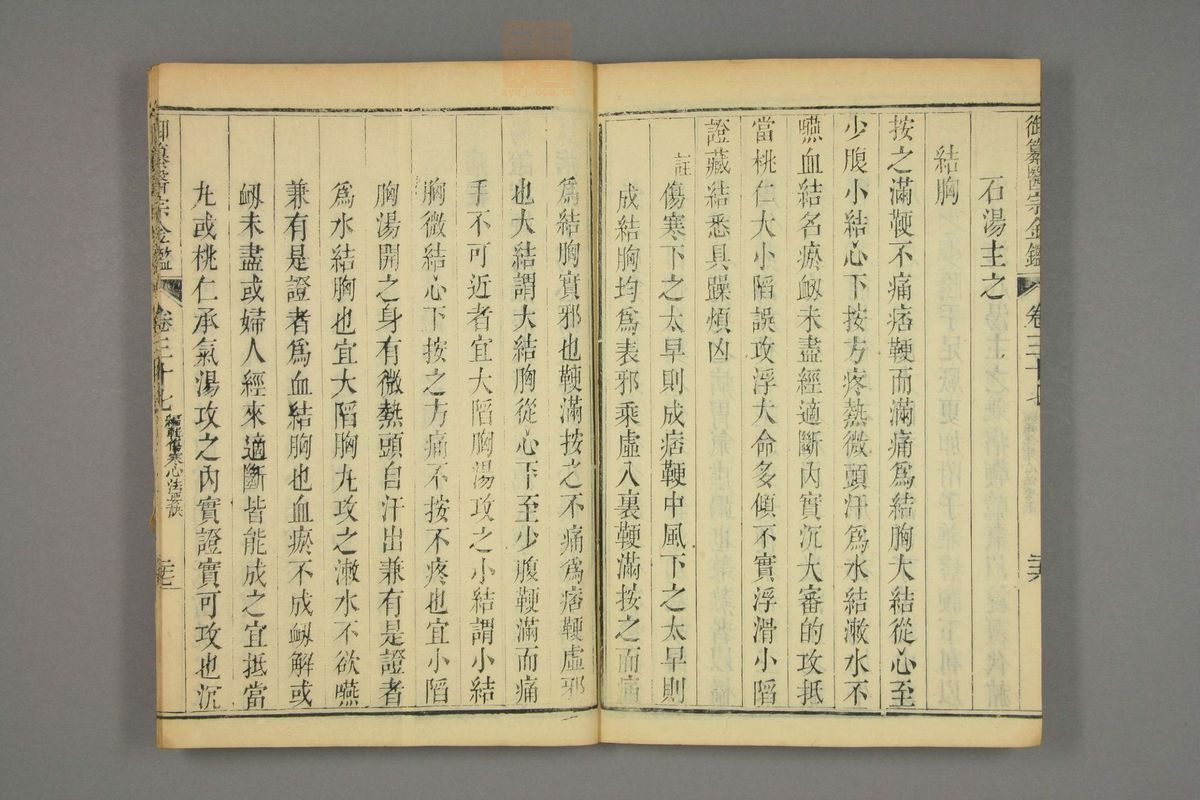 御纂醫宗金鑑 卷三十七
石湯主之
結胸
按之滿鞕不痛痞鞕而滿痛爲結胸大結從心至
少腹小結心下按方疼熱微頭汗爲水結漱水不
嚥血結名瘀衂未盡經適斷内實沉大審的攻抵
當桃仁大小陷誤攻浮大命多傾不實浮滑小陷
證藏結悉具躁煩凶
註 傷寒下之太早則成痞鞕中風下之太早則
成結胸均爲表邪乘虛入裏鞕滿按之而痛
爲結胸實邪也鞕滿按之不痛爲痞鞕虛邪
也大結謂大結胸從心下至少腹鞕滿而痛
手不可近者宜大陷胸湯攻之小結謂小結
胸微結心下按之方痛不按不疼也宜小陷
胸湯開之身有微熱頭自汗出兼有是證者
爲水結胸也宜大陷胸丸攻之漱水不欲嚥
兼有是證者爲血結胸也血瘀不成衂解或
衂未盡或婦人經來適斷皆能成之宜抵當
丸或桃仁承氣湯攻之内實證實可攻也沉
御纂醫宗金鑑 卷三十七 編輯傷寒心法要訣